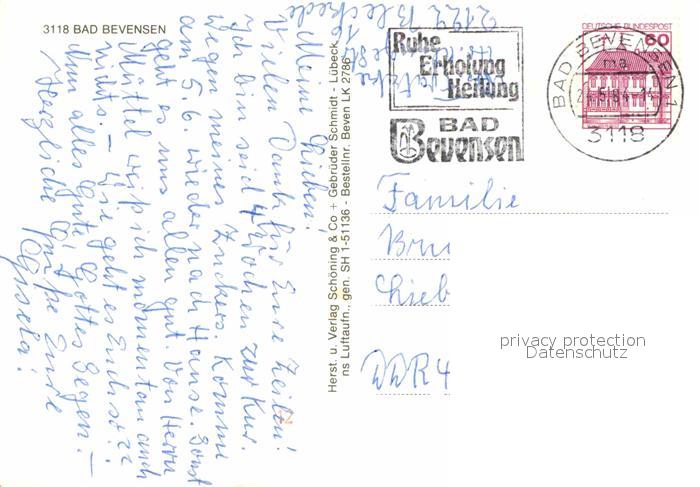 3118 BAD BEVENSEN
Meine Lieben!
Vielen Dank für Eure Zeilen!
Ich bin seit 4 Wochen zur Kur.
wegen meines Zuckers. Komme
am 5.6. wieder nach Hause. Sonst
geht es uns allen gut. Von Herrn
Müttel weiß ich momentan auch
nichts. – Wie geht es Euch so?
Nun alles Gute Gottes Segen. –
Herzliche Grüße Eure
Gisela!
2122 Bleckede
Herst. u. Verlag Schöning & Co + Gebrüder Schmidt - Lübeck
ns Luftaufn., gen. SH 1-51136 - Bestellnr. Beven LK 2786
Ruhe
Erholung
Heilung
BAD
Bevensen
DEUTSCHE BUNDESPOST
60
BAD BEVENSEN 1
ma
3118
Familie
Bru
Lieb
DDR 4
privacy protection
Datenschutz